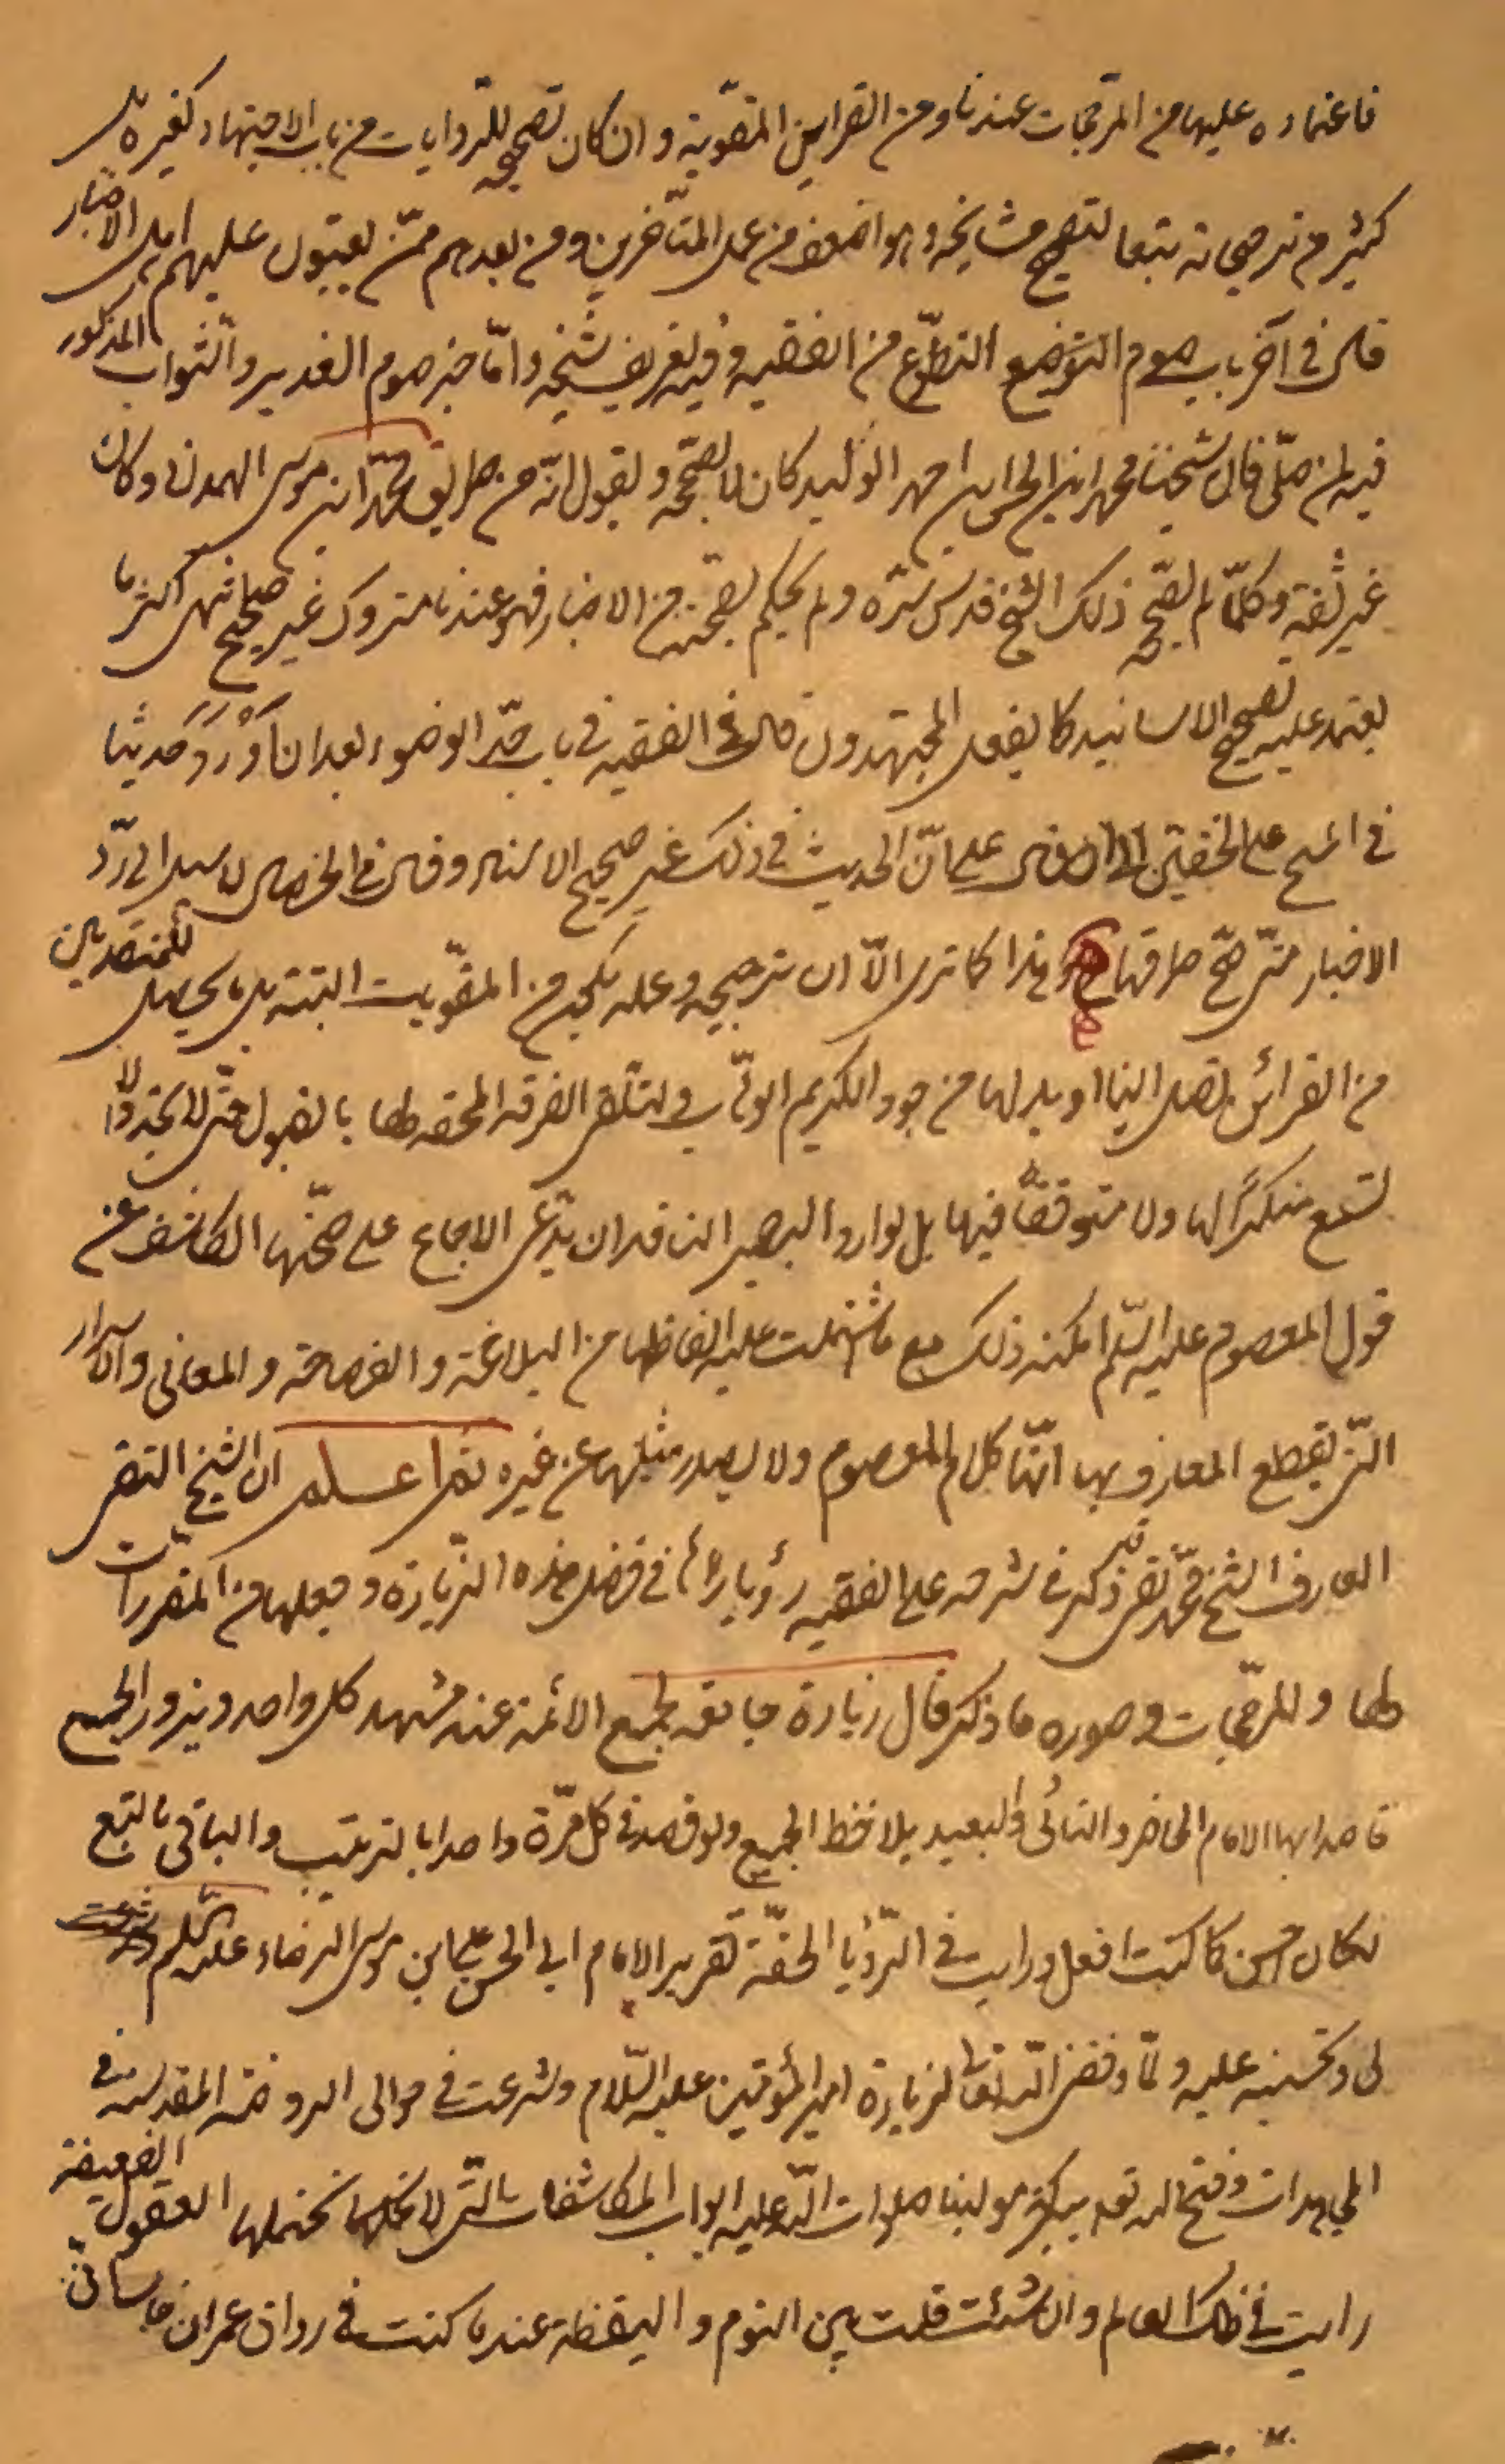 فاعتماده عليها من المرجحات عندنا ومن القراين المقوية وان كان تصحيحه للروايات من باب الاجتهاد كغيره بل
كثير من ترجيحاته تبعا لتصحيح مشايخه وهو اضعف من عمل المتاخرين ومن بعدهم ممن يعيبون عليهم اهل الاخبار
قال في آخر باب صوم التطوع من الفقيه وفيه تعريف شيخه واما خبر صوم الغدير والثواب المذكور
فيه لمن صلى قال شيخنا محمد ابن الحسن ابن احمد الوليد كان لا يصححه ويقول انه من طريق محمد ابن موسى الهمداني وكان
غير ثقة وكلما لم يصححه ذلك الشيخ قدس سره ولم يحكم بصحته من الاخبار فهو عندنا متروك غير صحيح انتهى اكثر ما
يعتمد عليه تصحيح الاسانيد كما يفعل المجتهدون قال في الفقيه في باب حد الوضوء بعد ان اورد حديثا
في المسح على الخفين قال على ان الحديث في ذلك غير صحيح الاسناد وقال في الخصال لا سبيل الى رد
الاخبار متى صح طرقها وهذا كما ترى الا ان ترجيحه وعمله يكون من المقويات البتة بل يحصل للمتصدين
من القرائن تصل الينا او بدلها من جود الكريم الوهاب ولتلقى الفرقة المحقة لها بالقبول حتى لا تجد ولا
تسمع منكرا لها ولا متوقفا فيها بل لو اراد البصير الناقد ان يدعى الاجماع على صحتها الكاشف عن
قول المعصوم عليه السلم امكنه ذلك مع ما اشتملت عليه الفاظها من البلاغة والفصاحة والمعاني والاسرار
التى يقطع العارف بها انها كلام المعصوم ولا يصدر مثلها عن غيره ثم اعلم ان الشيخ التقى
العارف الشيخ محمد تقى ذكر في شرحه على الفقيه رؤيا راها في فضل هذه الزيارة وجعلها من المقررات
لها والمرجحات وصوره ما ذكر قال زيارة جامعه لجميع الائمة عند مشهد كل واحد ويزور الجميع
قاصدا بها الامام الحاضر والنائى والبعيد يلاحظ الجميع ولو قصد في كل مرة واحدا بالترتيب والباقى بالتبع
لكان احسن كما كنت افعل ورايت في الرؤيا الحقة تقرير الامام ابي الحسن علي ابن موسى الرضاء عليه السلم
لى وتحسينه عليه ولما وفقني الله تعالى لزيارة امير المؤمنين عليه السلام وشرعت في حوالى الروضة المقدسة في
المجاهدات وفتح الله تع ببركة مولينا صلوات الله عليه ابواب المكاشفات التى لا تحتملها العقول الضعيفة
رايت في ذلك العالم وان شئت قلت بين النوم واليقظة عندما كنت في رواق عمران جالسا